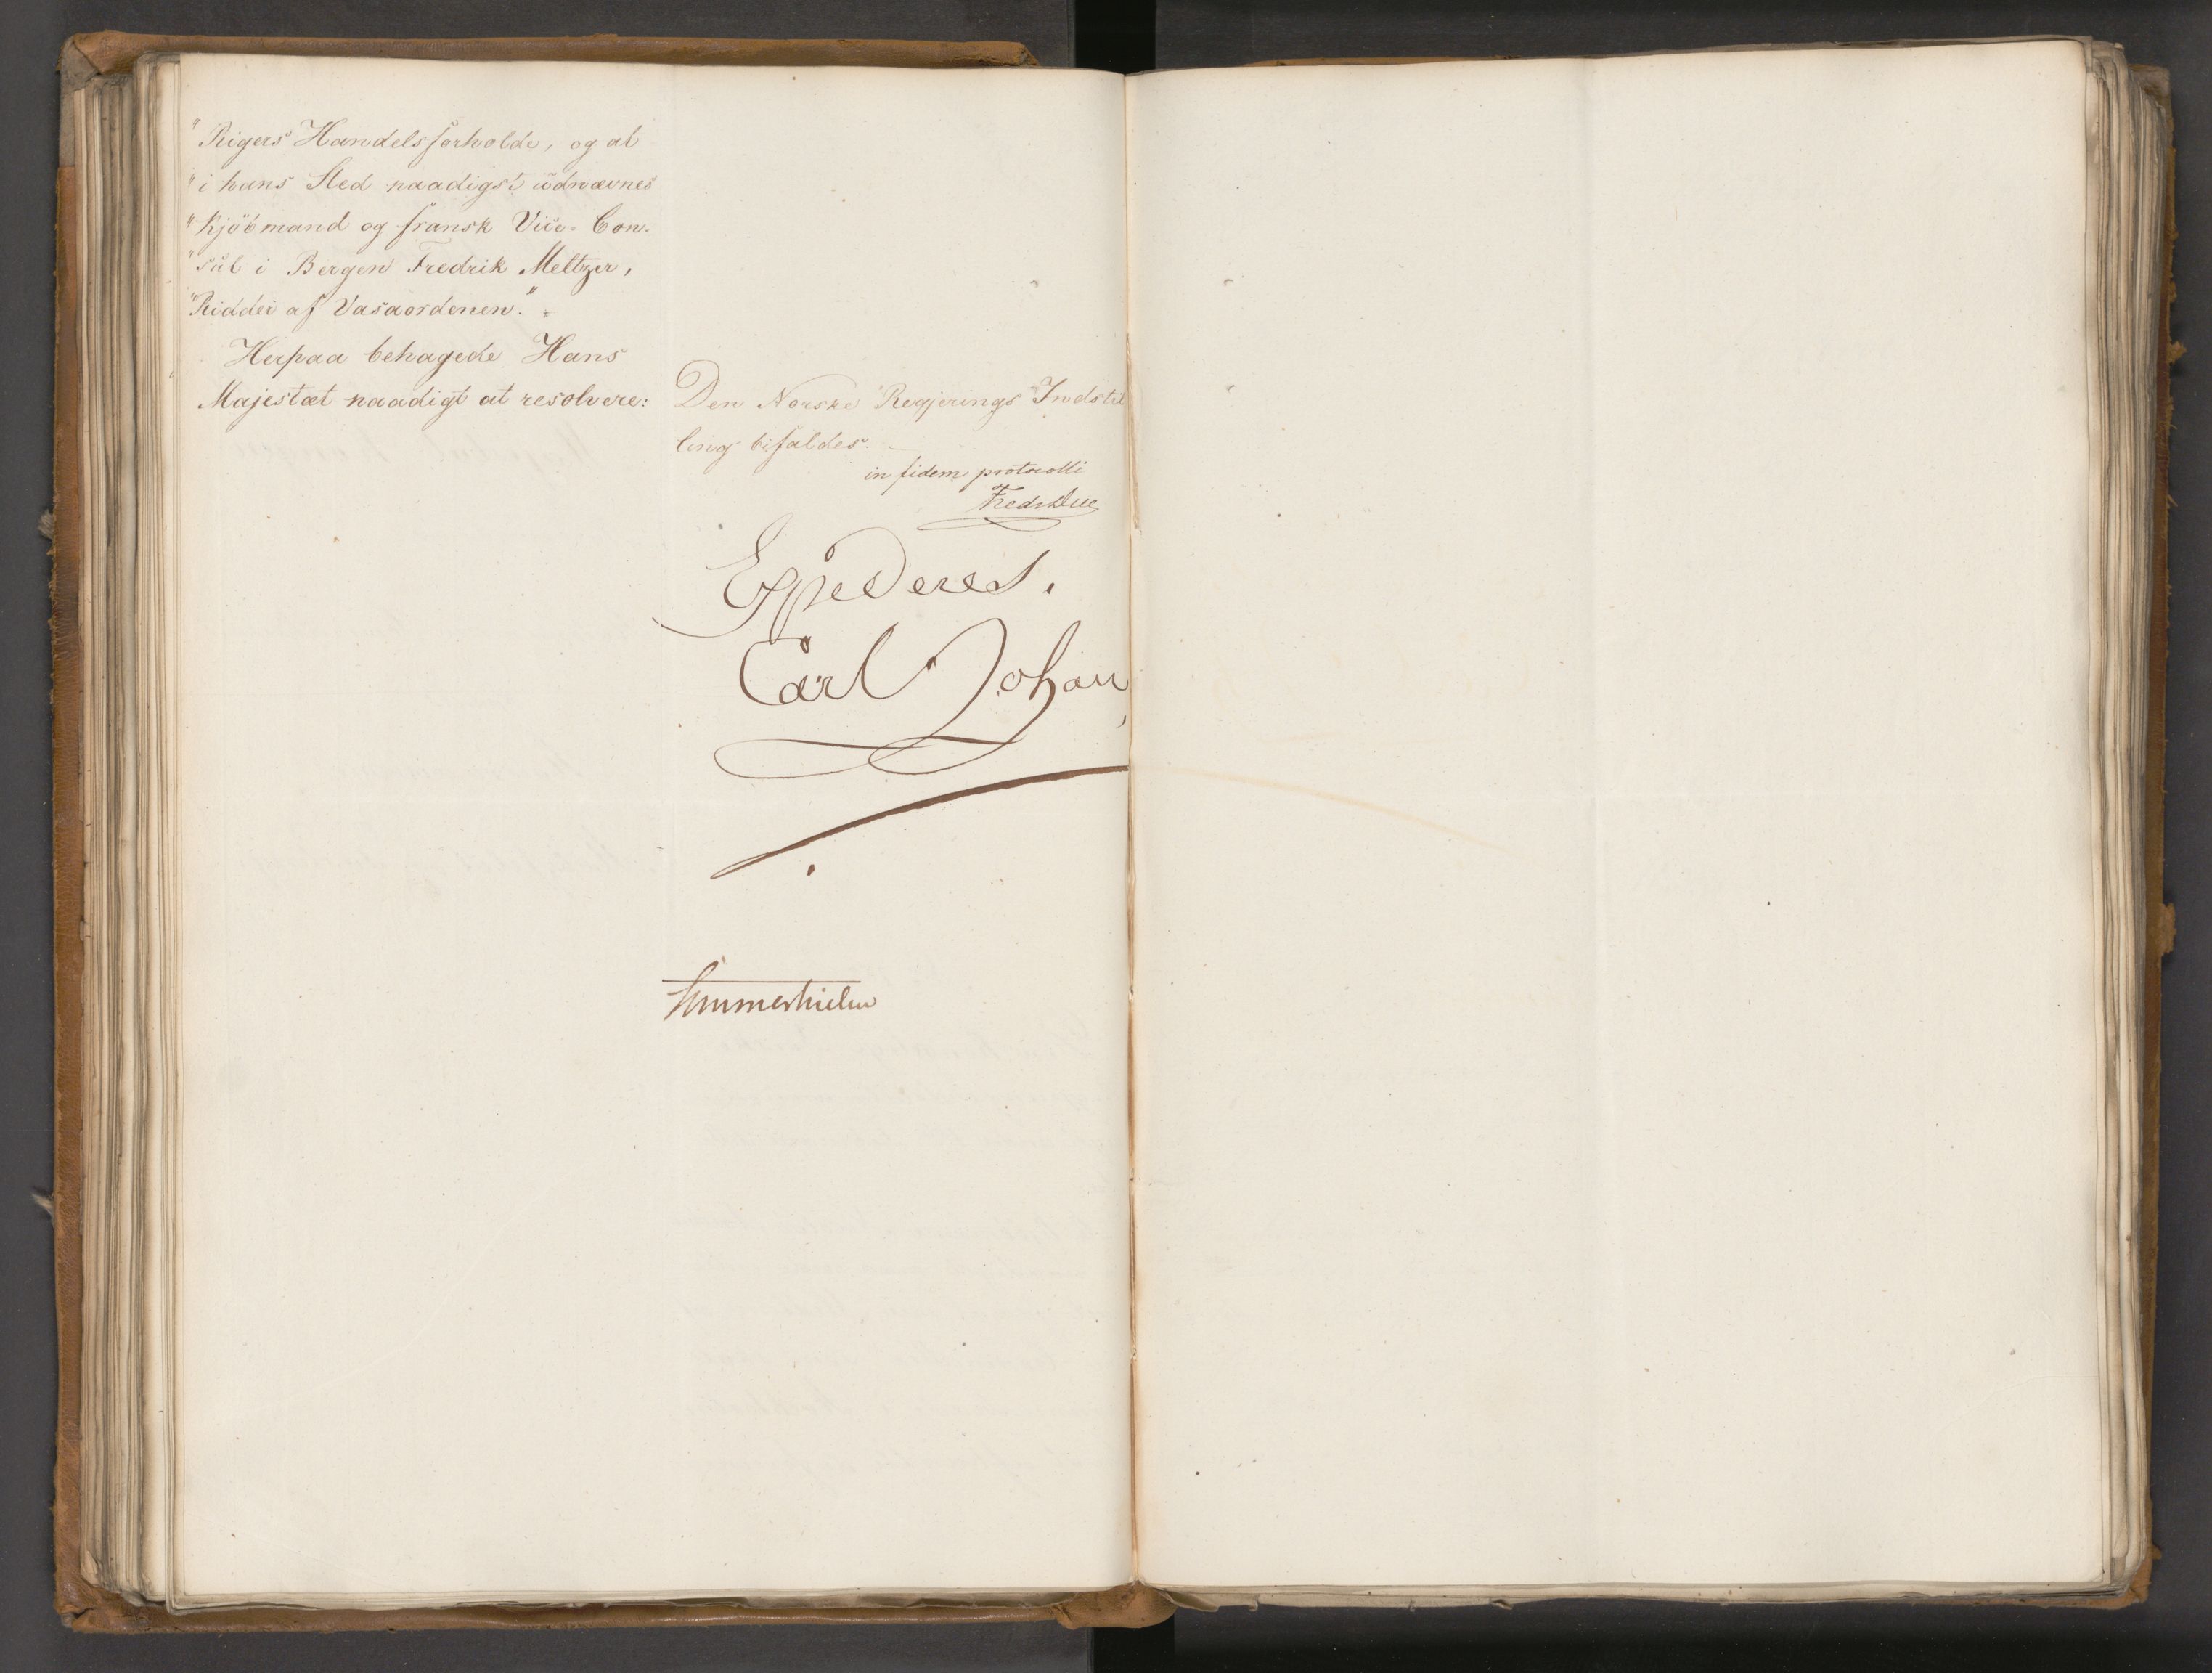 "Rigers Handelsforholde, og at
"i hans Sted naadigst udnævnes
"Kjöbmand og fransk Vice-Con-
"sul i Bergen Fredrik Meltzer,
"Ridder af Vasaordenen."
Herpaa behagede Hans
Majestæt naadigt at resolvere:
Den Norske Regjerings Indstil
ling bifaldes.
in fidem protocolli
Fredr Due
Expederes.
Carl Johan
Sommerhielm